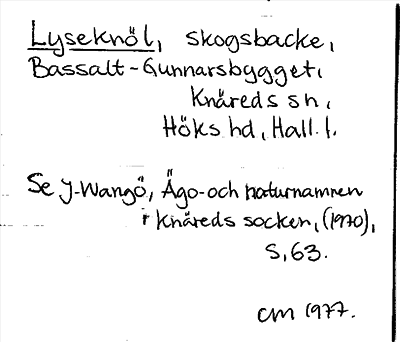 Lyseknöl, skogsbacke,
Bassalt-Gunnarsbygget,
Knäreds sn,
Höks hd, Hall. l.
Se J-Wangö, Ägo- och naturnamnen
i Knäreds socken, (1970),
s, 63.
cm 1977.